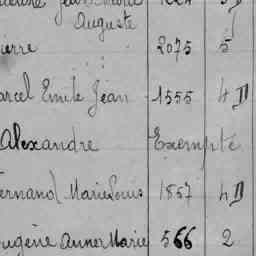 Auguste
ierre 2075 5
arcel Emile Jean 1555 4 D
Alexandre Exempté
ernand Marie Louis 1857 4 D
ugène Anner Marie 566 2